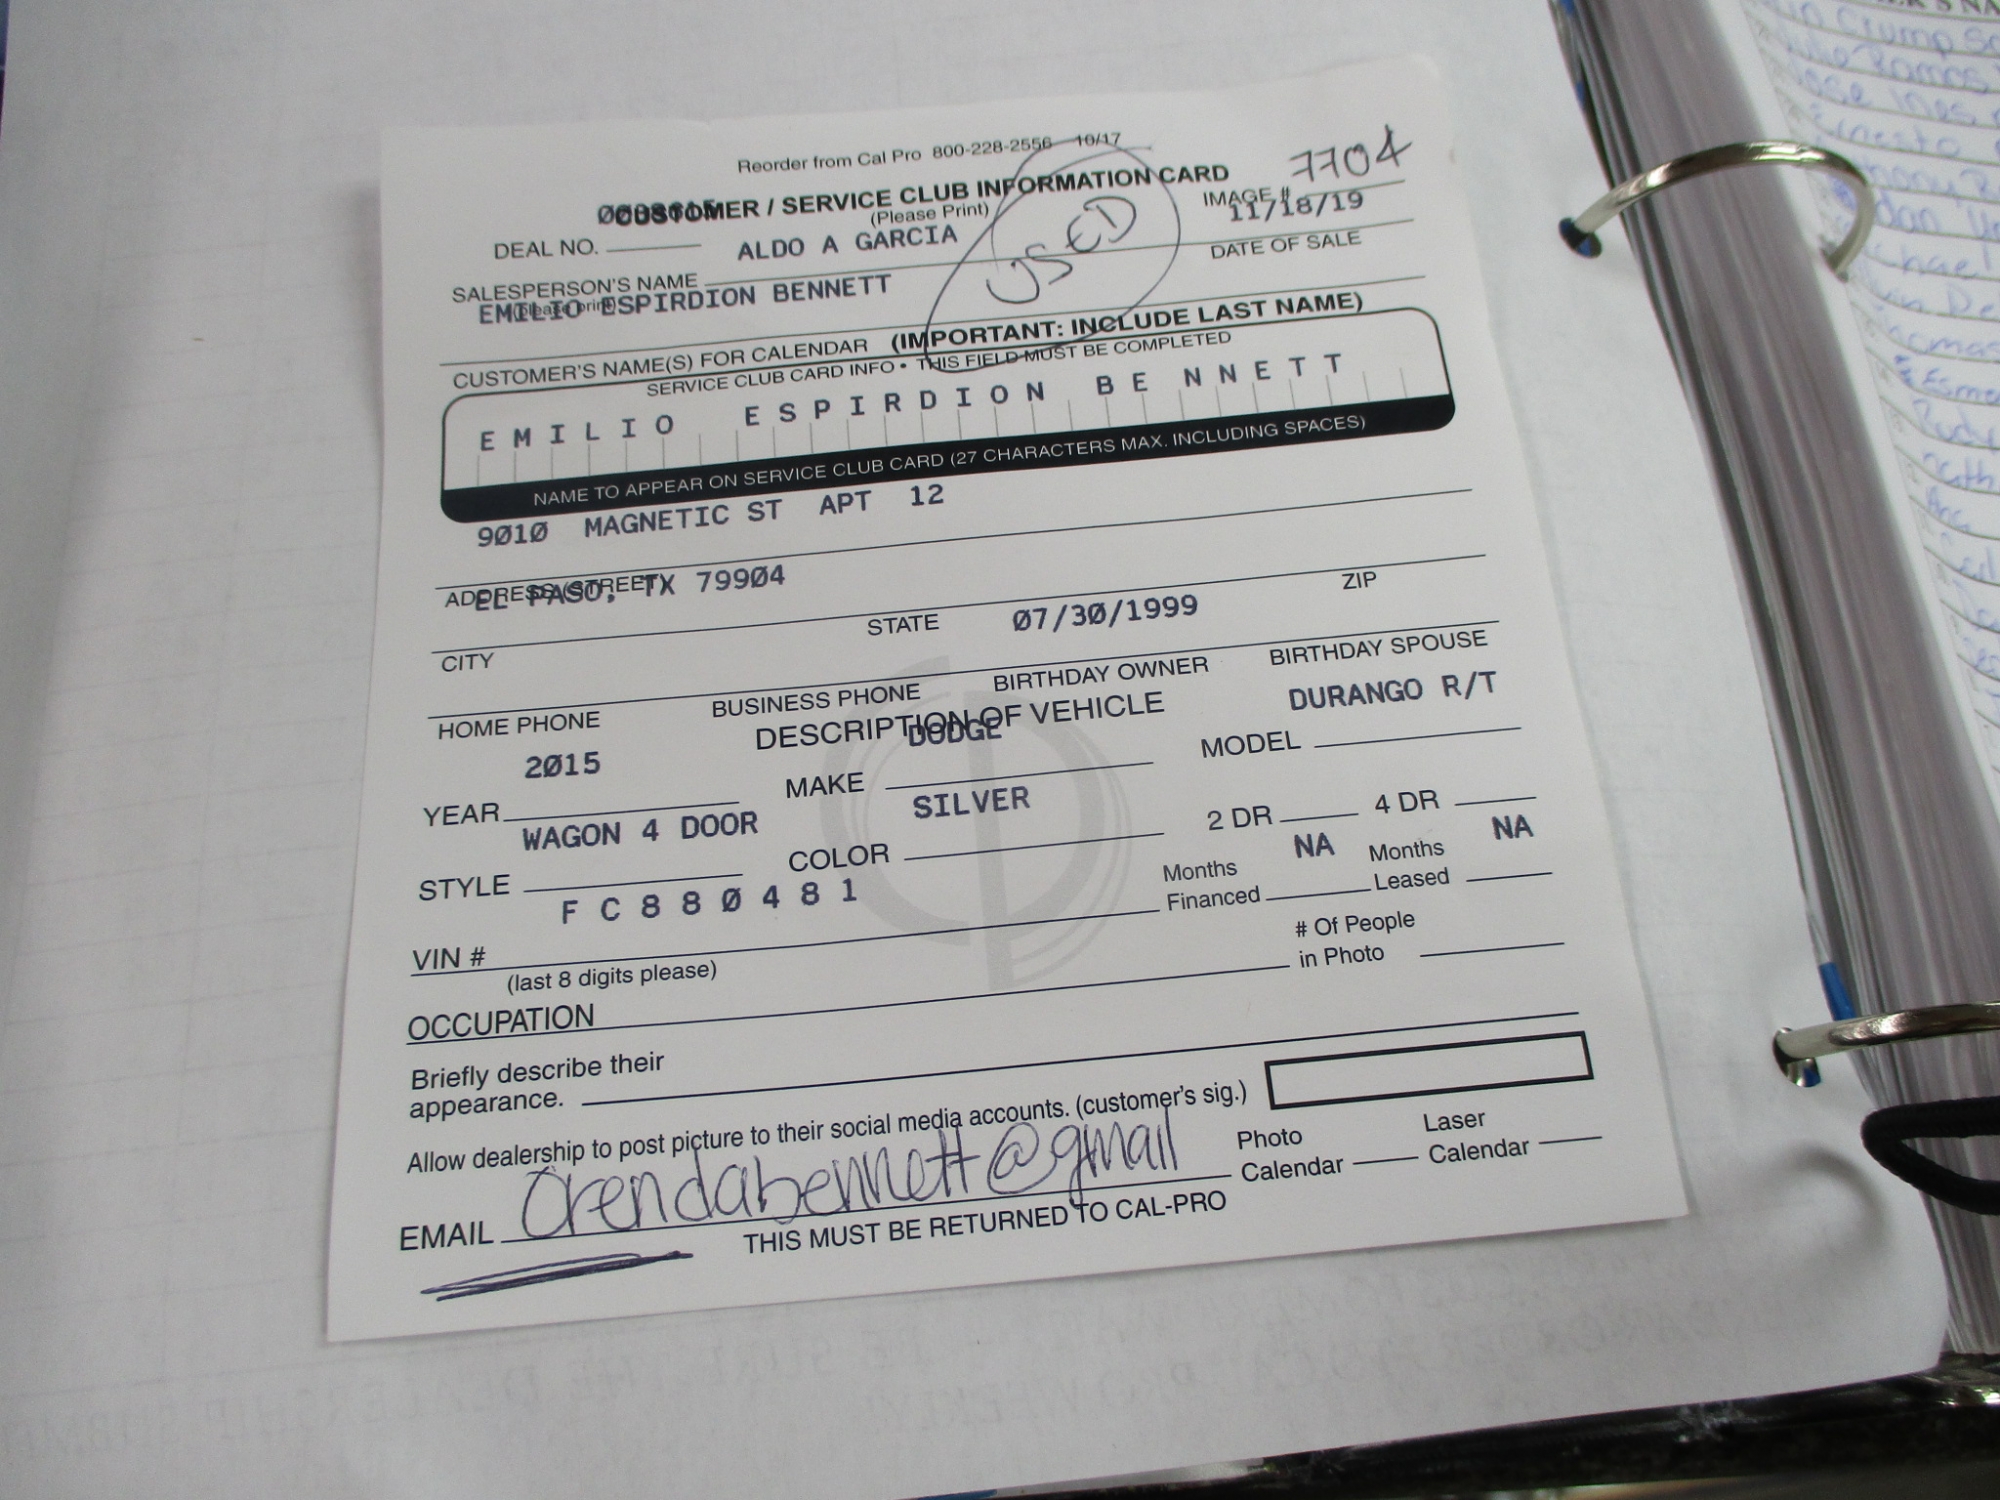 Reorder from Cal Pro 800-228-2556 10/17
CUSTOMER / SERVICE CLUB INFORMATION CARD
7704
(Please Print)
IMAGE #
11/18/19
DEAL NO.
ALDO A GARCIA
USED
DATE OF SALE
SALESPERSON'S NAME
(please print)
EMILIO ESPIRDION BENNETT
CUSTOMER'S NAME(S) FOR CALENDAR (IMPORTANT: INCLUDE LAST NAME)
SERVICE CLUB CARD INFO • THIS FIELD MUST BE COMPLETED
EMILIO ESPIRDION BENNETT
NAME TO APPEAR ON SERVICE CLUB CARD (27 CHARACTERS MAX. INCLUDING SPACES)
9010 MAGNETIC ST APT 12
ADDRESS (STREET)
EL PASO, TX 79904
CITY
STATE
ZIP
07/30/1999
HOME PHONE
BUSINESS PHONE
BIRTHDAY OWNER
BIRTHDAY SPOUSE
DESCRIPTION OF VEHICLE
2015
DODGE
DURANGO R/T
YEAR
MAKE
MODEL
WAGON 4 DOOR
SILVER
2 DR
4 DR
STYLE
COLOR
Months Financed
NA
Months Leased
NA
F C 8 8 0 4 8 1
VIN #
(last 8 digits please)
# Of People
in Photo
OCCUPATION
Briefly describe their
appearance.
Allow dealership to post picture to their social media accounts. (customer's sig.)
EMAIL Crendabennett@gmail
Photo Calendar
Laser Calendar
THIS MUST BE RETURNED TO CAL-PRO